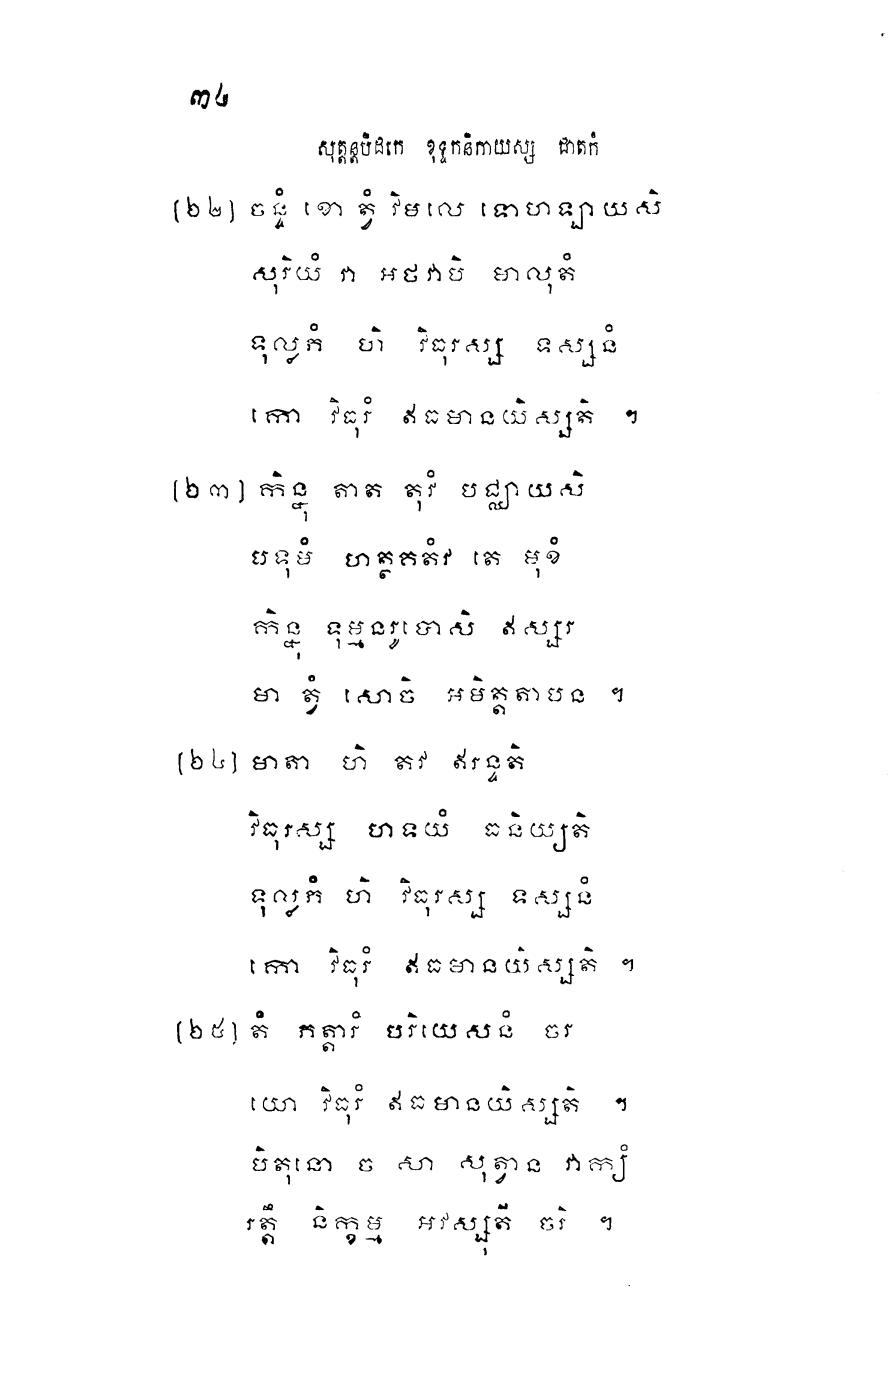 ៣៤
សុត្តន្តបិដកេ ខុទ្ទកនិកាយស្ស ជាតកំ
(២២) ចន្ទំ ខោ ត្វំ វិមលេ ទោហឡាយសិ
សុរិយំ វា អថវាបិ មាលុតំ
ទុល្លកំ ហិ វិធុរស្ស ទស្សនំ
កោ វិធុរំ ឥធមានយិស្សតិ ។
(២៣) កិន្នុ តាត តុវំ បជ្ឈាយសិ
បទុមំ ហត្ថកតំវ តេ មុខំ
កិន្នុ ទុម្មនរូបោសិ ឥស្សរ
មា ត្វំ សោចិ អមិត្តតាបន ។
(២៤) មាតា ហិ តវ ឥរន្ទតិ
វិធុរស្ស ហទយំ ធនិយ្យតិ
ទុល្លកំ ហិ វិធុរស្ស ទស្សនំ
កោ វិធុរំ ឥធមានយិស្សតិ ។
(២៥) តំ កត្តារំ បរិយេសនំ ចរ
យោ វិធុរំ ឥធមានយិស្សតិ ។
បិតុនោ ច សា សុត្វាន វាក្យំ
រត្តឹ និក្ខម្ម អវស្សុតី ចរិ ។